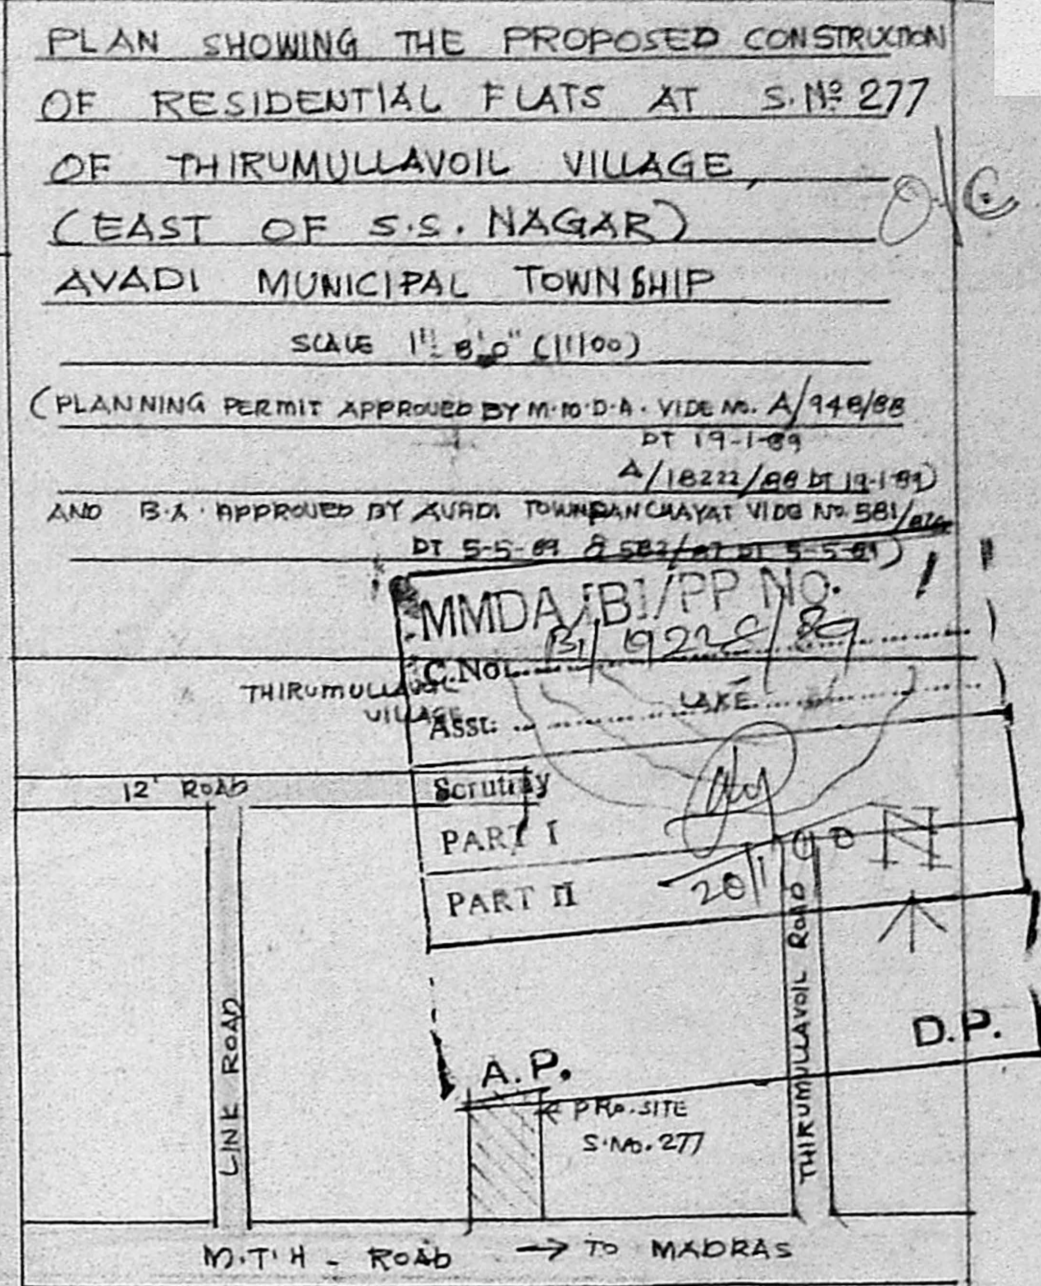 PLAN SHOWING THE PROPOSED CONSTRUCTION
OF RESIDENTIAL FLATS AT S.Nº 277
OF THIRUMULLAVOIL VILLAGE,
(EAST OF S.S. NAGAR)
AVADI MUNICIPAL TOWNSHIP
SCALE 1"= 8'0" (1:100)
(PLANNING PERMIT APPROVED BY M.M.D.A. VIDE No. A/948/88
DT 19-1-89
A/18222/88 DT 19-1-89)
AND B.A. APPROVED BY AVADI TOWNPANCHAYAT VIDE No. 581/
DT 5-5-89 & 582/87 DT 5-5-89)
O/C
MMDA [B]/PP NO.
C.No. B1/ /89
THIRUMULLAVOIL
VILLAGE
LAKE
Asst:
12' ROAD
Scrutiny
PART I
PART II
20/1/90
N
LINK ROAD
THIRUMULLAVOIL ROAD
D.P.
A.P.
PRO.SITE
S.No.277
M.T.H - ROAD → TO MADRAS